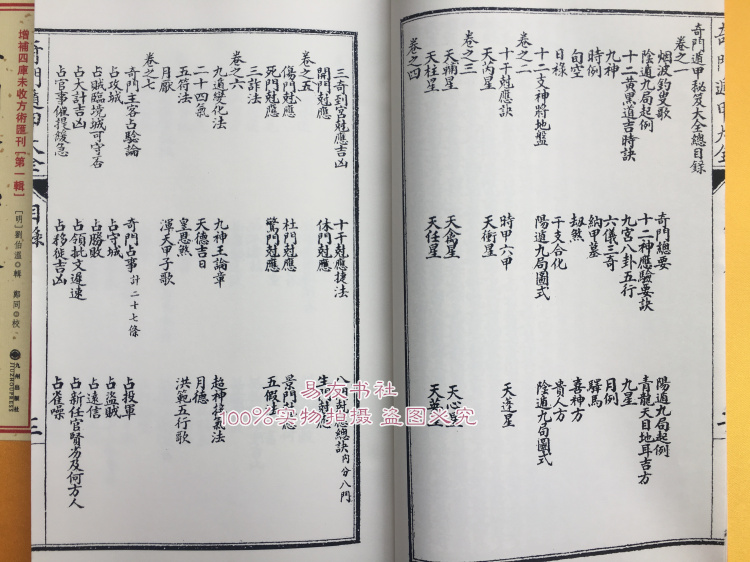 奇門遁甲大全
奇門遁甲秘笈大全總目録
卷之一
烟波釣叟歌 奇門總要 陽遁九局起例
陰遁九局起例 十二神應驗要訣 青龍天目地耳吉方
十二黄黑道吉時訣 九宫八卦五行 九星
九神 六儀三奇 月例
時例 納甲墓 驛馬
旬空 刧煞 喜神方
日禄 干支合化 貴人方
十二支神將地盤 陽遁九局圖式 陰遁九局圖式
卷之二
十干尅應訣 時甲六甲
天芮星 天衝星 天逢星
卷之三
天輔星 天禽星 天心星
天柱星 天任星 天英星
卷之四
三奇到宫尅應吉凶 十干尅應捷法 八門尅應總訣内分八門
開門尅應 休門尅應 生門尅應
卷之五
傷門尅應 杜門尅應 景門尅應
死門尅應 驚門尅應 五假法
三詐法
卷之六
九遁變化法 九神王論章 超神接氣法
二十四氣 天德吉日 月德
五符法 皇恩煞 洪範五行歌
月厭 渾天甲子歌
卷之七
奇門主客占驗論 奇門占事計二十七條
占攻城 占守城 占投軍
占賊臨境城可守否 占勝敗 占盜賊
占大計吉凶 占領批文遲速 占遠信
占官事催提緩急 占移徙吉凶 占新任官賢劣及何方人
占雀噪
奇門遁甲大全
目録
三
增補四庫未收方術匯刊[第一輯]
[明]劉伯溫◎輯 鄭同◎校
九州出版社
JIUZHOUPRESS
易友书社
100%实物拍摄 盗图必究